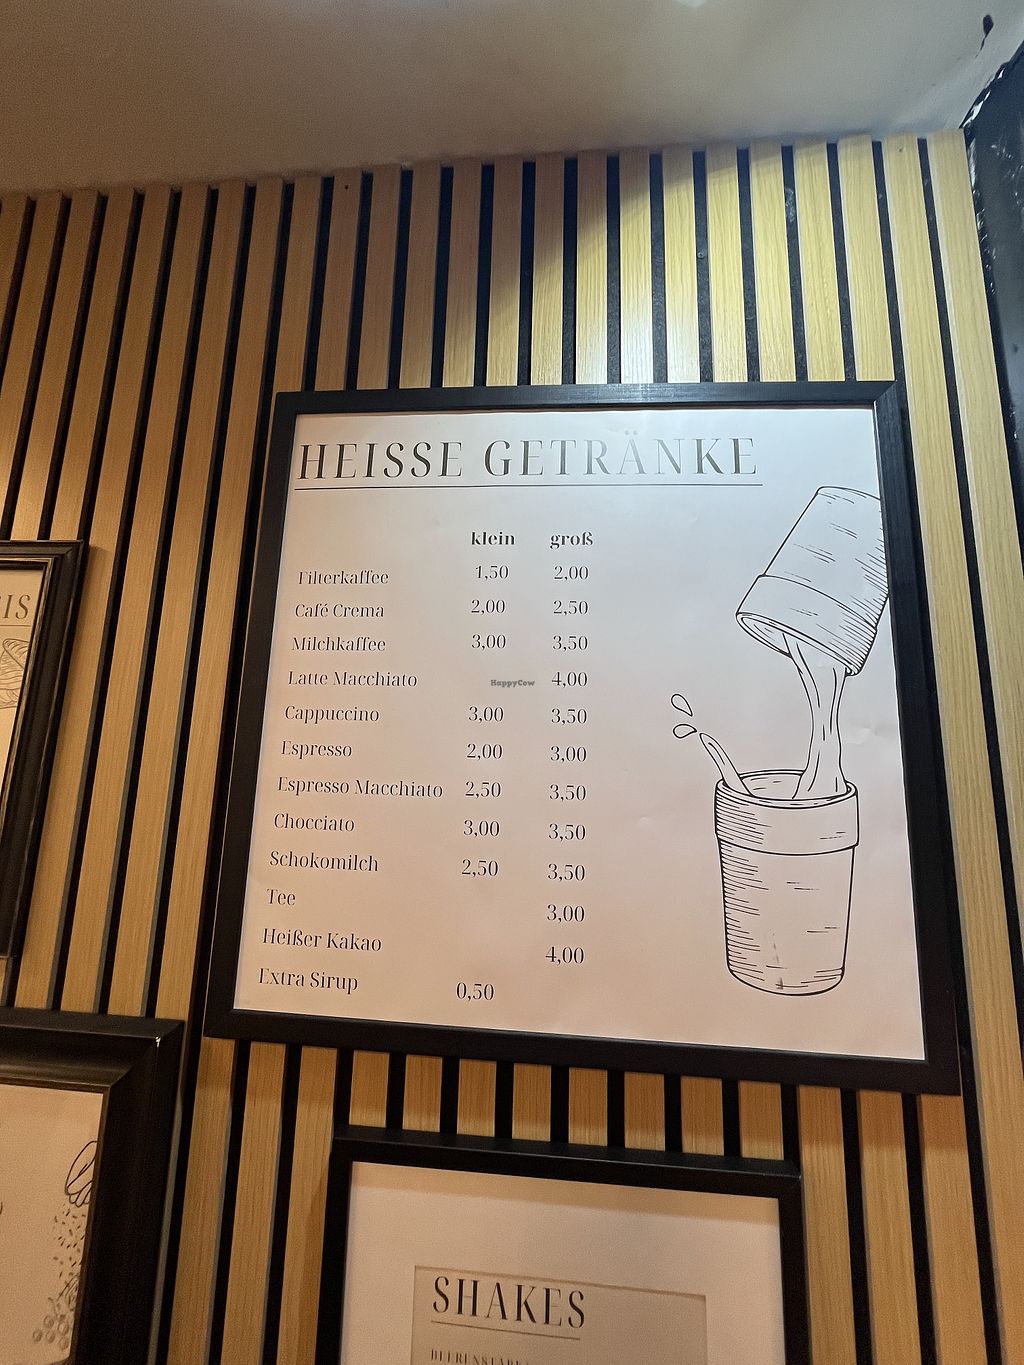 HEISSE GETRÄNKE
klein groß
Filterkaffee 1,50 2,00
Café Crema 2,00 2,50
Milchkaffee 3,00 3,50
Latte Macchiato 4,00
HappyCow
Cappuccino 3,00 3,50
Espresso 2,00 3,00
Espresso Macchiato 2,50 3,50
Chocciato 3,00 3,50
Schokomilch 2,50 3,50
Tee 3,00
Heißer Kakao 4,00
Extra Sirup 0,50
SHAKES